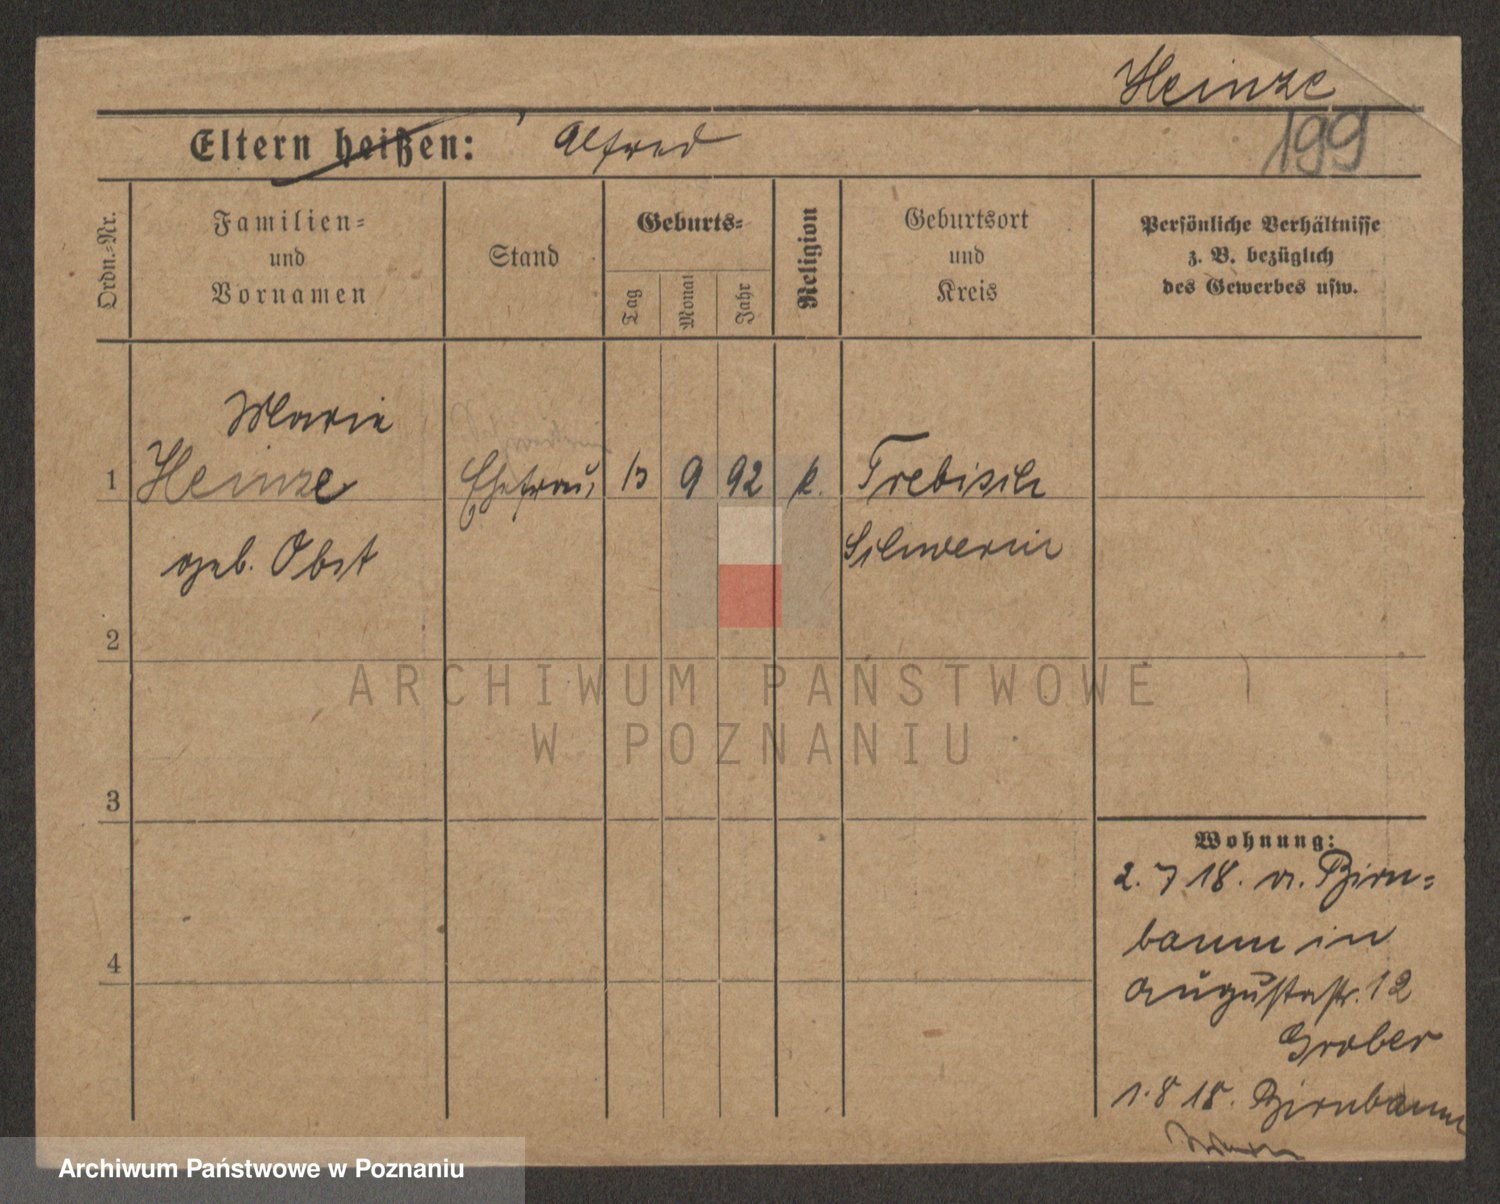 Heinze
199
Eltern heißen: Alfred
Ordn.-Nr.
Familien-
und
Vornamen
Stand
Geburts-
Tag
Monat
Jahr
Religion
Geburtsort
und
Kreis
Persönliche Verhältnisse
z. B. bezüglich
des Gewerbes usw.
Marie
1 Heinze Ehefrau 13 9 92 k. Trebisch
geb. Obst Schwerin
2
ARCHIWUM PAŃSTWOWE
W POZNANIU
3
Wohnung:
2. 7 18. v. Birn-
baum in
4
Augustastr. 12
Graber
1. 8 18. Birnbaum
Archiwum Państwowe w Poznaniu